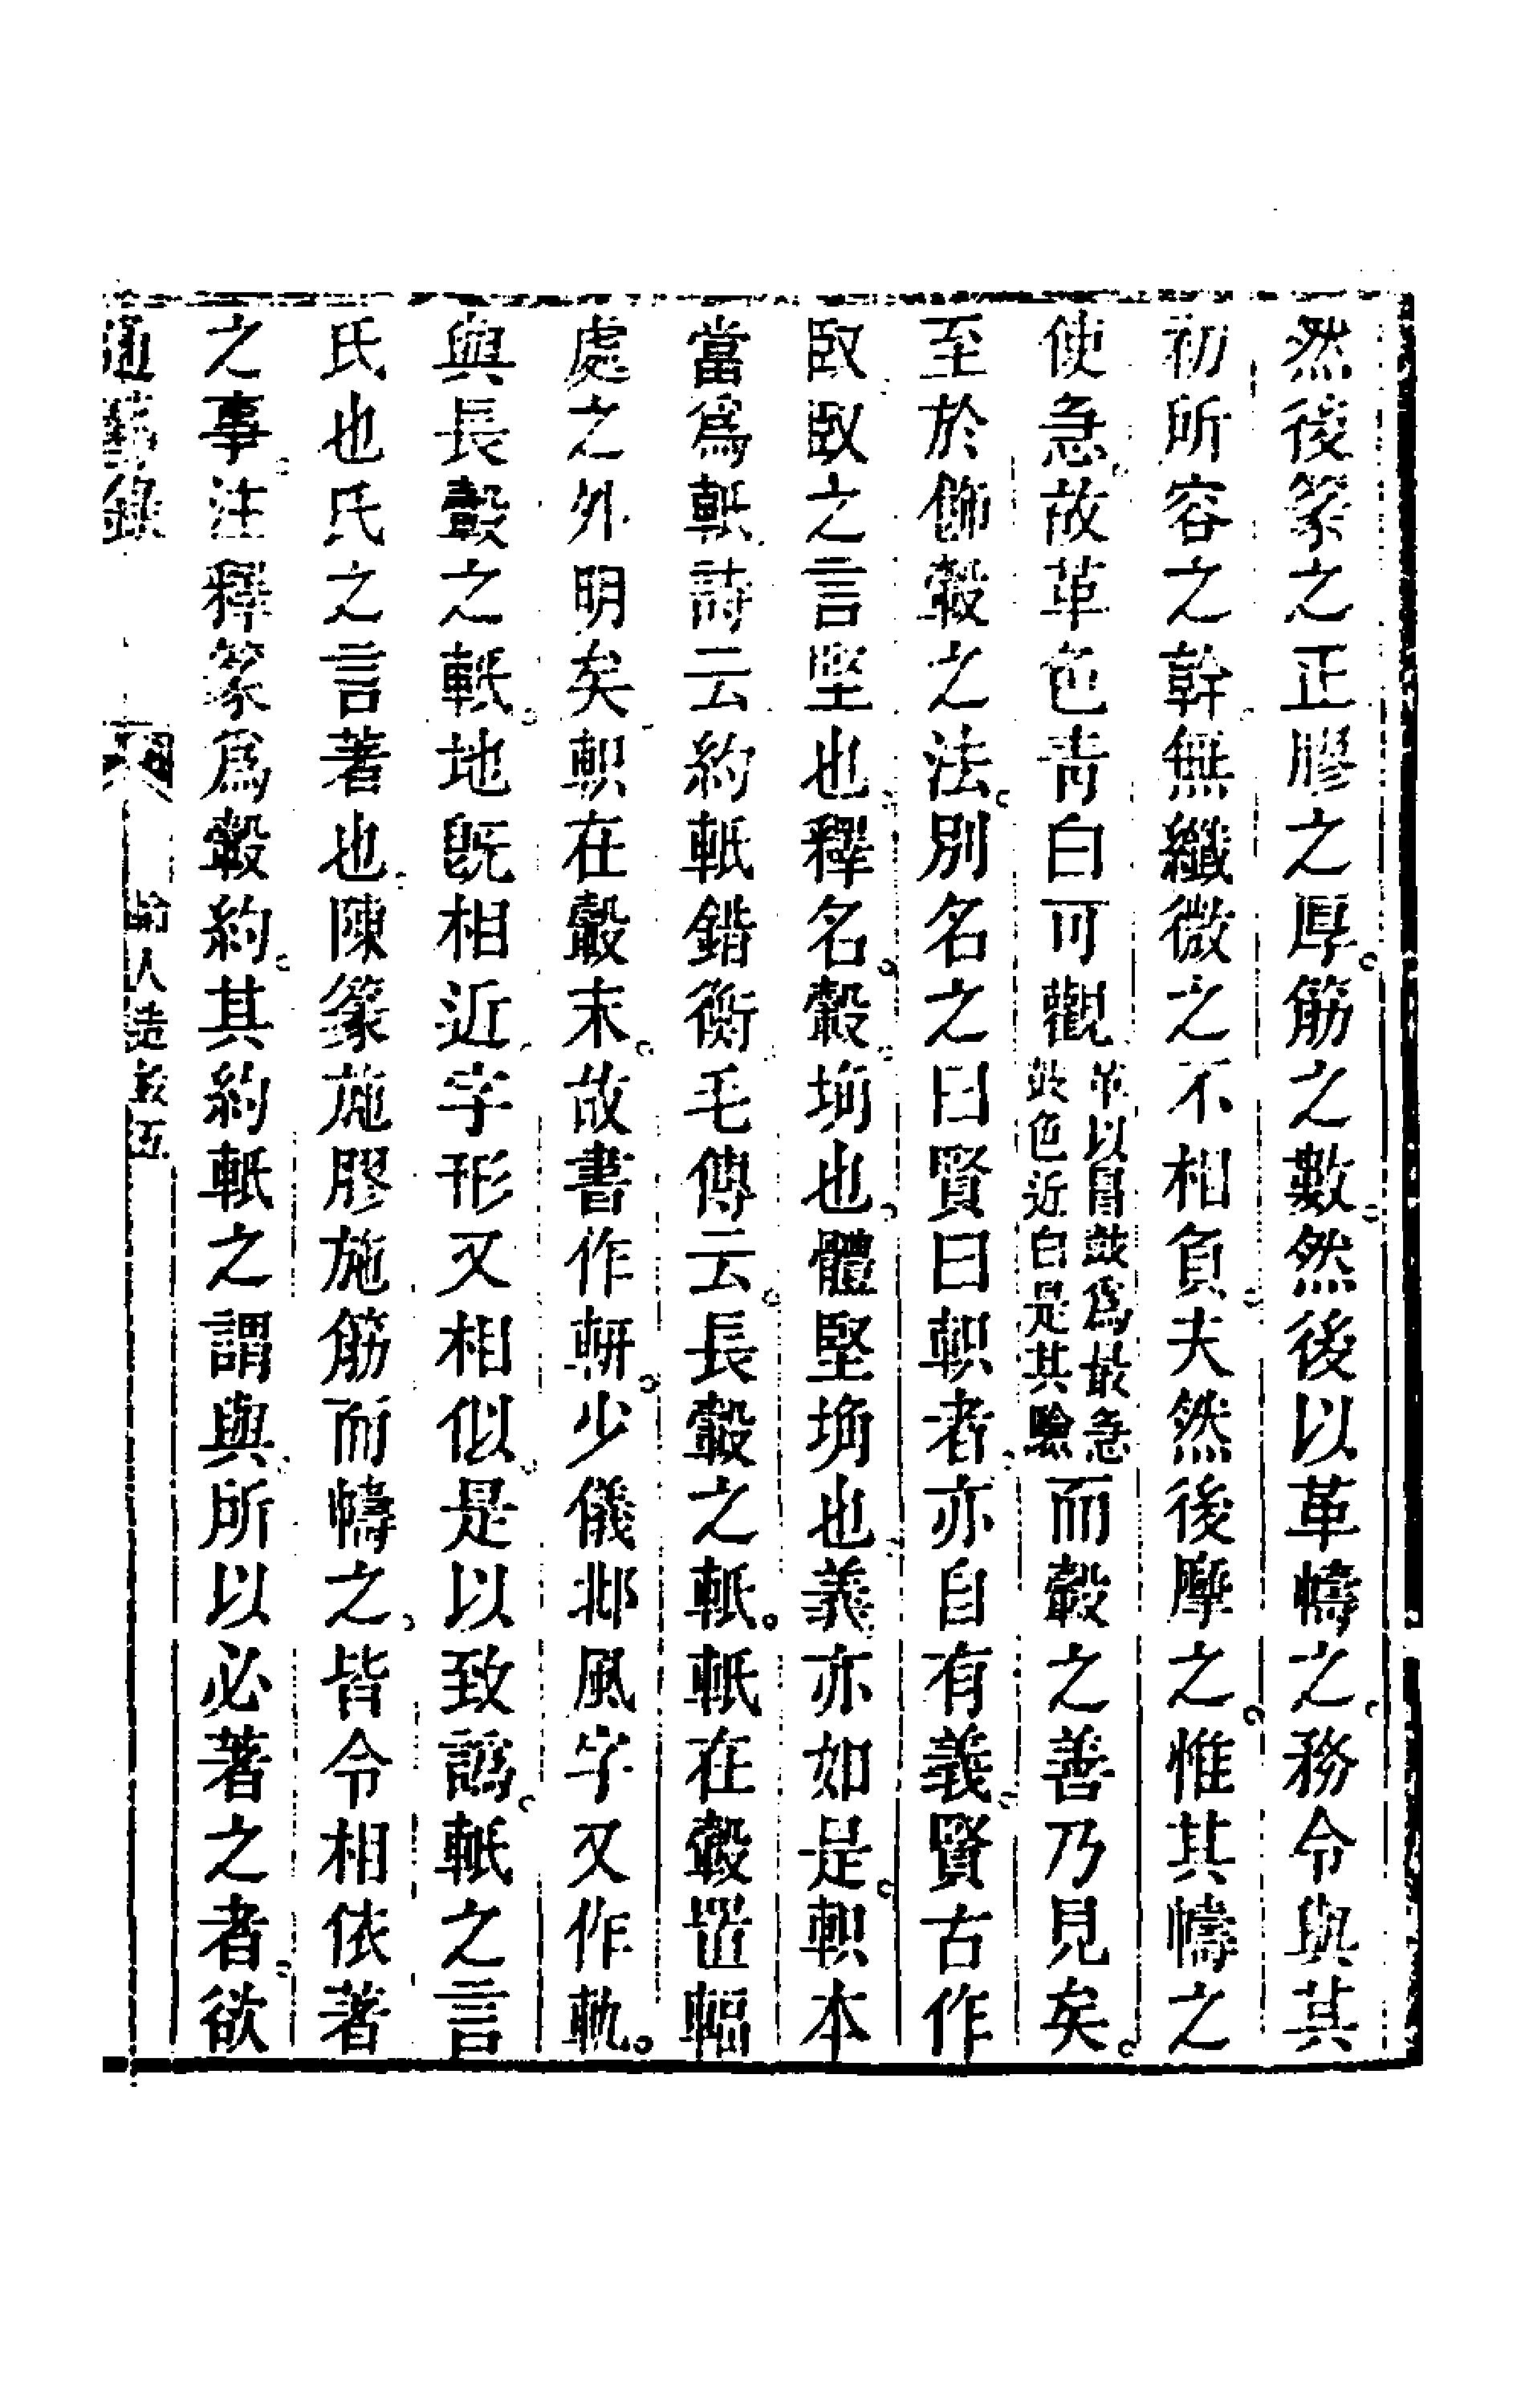 然後篆之正膠之厚筋之數然後以革幬之務令與其
初所容之幹無纖微之不相負夫然後摩之惟其幬之
使急故革色青白可觀革以冒鼓爲最急鼓色近白是其驗而轂之善乃見矣
至於飾轂之法別名之曰賢曰軹者亦自有義賢古作
臤臤之言堅也釋名轂埆也體堅埆也義亦如是軹本
當爲軝詩云約軝錯衡毛傳云長轂之軝軝在轂置輻
處之外明矣軹在轂末故書作軿少儀邶風字又作軌
與長轂之軝地既相近字形又相似是以致譌軝之言
氏也氏之言著也陳篆施膠施筋而幬之皆令相依著
之事注釋篆爲轂約其約軝之謂與所以必著之者欲
通藝錄
輪人造